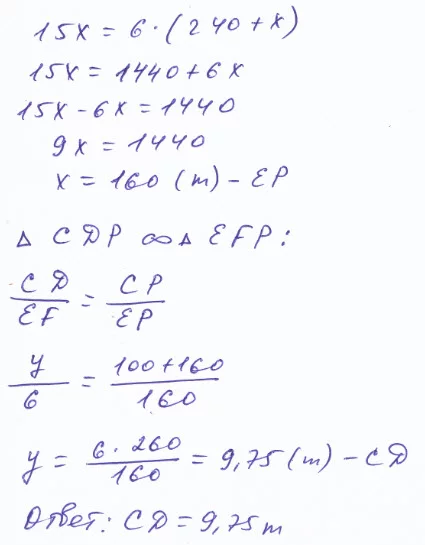 15x = 6·(240+x)
15x = 1440+6x
15x - 6x = 1440
9x = 1440
x = 160 (m) - EP
△ CDP ∞ △ EFP:
CD/EF = CP/EP
y/6 = 100+160/160
y = 6·260/160 = 9,75 (m) - CD
Ответ: CD = 9,75m